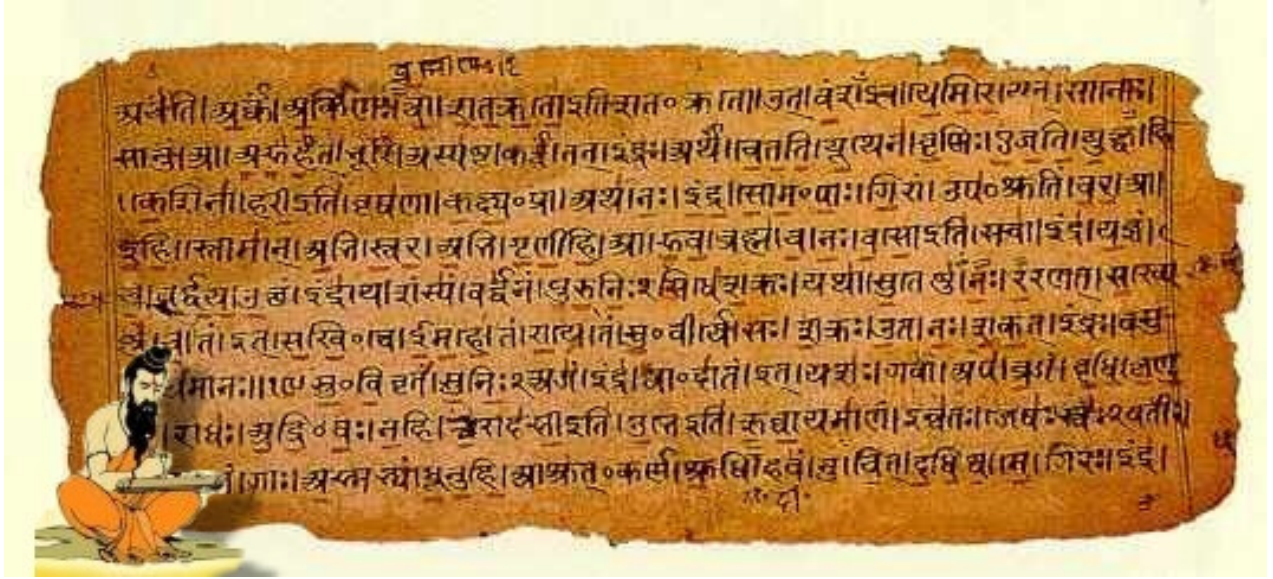 शतक्रतो इति शत०क्रतो। उत्। वंशंऽइव। येमिरे। यत्। सानोः।
सानुं। आ। अरुहत्। भूरि। अस्पष्ट। कर्त्वं। तत्। इंद्रः। अर्थं। चेतति। यूथेन। वृष्णिः। एजति। युक्ष्व। हि
। केशिना। हरी इति। वृषणा। कक्ष्य०प्रा। अथ। नः। इंद्र। सोम०पाः। गिरां। उप०श्रुतिं। चर। आ।
इहि। स्तोमान्। अभि। स्वर। अभि। गृणीहि। आ। रुव। ब्रह्म। च। नः। वसो इति। सचा। इंद्र। यज्ञं।
च। वर्धय। इंद्राय। शंस्यं। वर्धनं। शक्रः। यथा। सुतेषु। नः। ररणत्। सख्ये
षु। च। तं। इत्। सखि०त्वे। ईमहे। तं। राये। तं। सु०वीर्ये। सः। शक्रः। उत। नः। शकत्। इंद्रः। वसु
यमानः। सु०विवृतं। इंद्र। त्वा०दातं। इत्। यशः। गवां। अप। व्रजं। वृधि। कृणु
राधः। अद्रि०वः। नहि। त्वा। रोदसी इति। उभे इति। ऋघायमाणं। इन्वतः। जेषः। स्वः२वतीः।
सं। गाः। अस्मभ्यं। धूनुहि। आश्रुत्०कर्ण। श्रुधि। हवं। नु। चित्। दधिष्व। मे। गिरः। इंद्र।